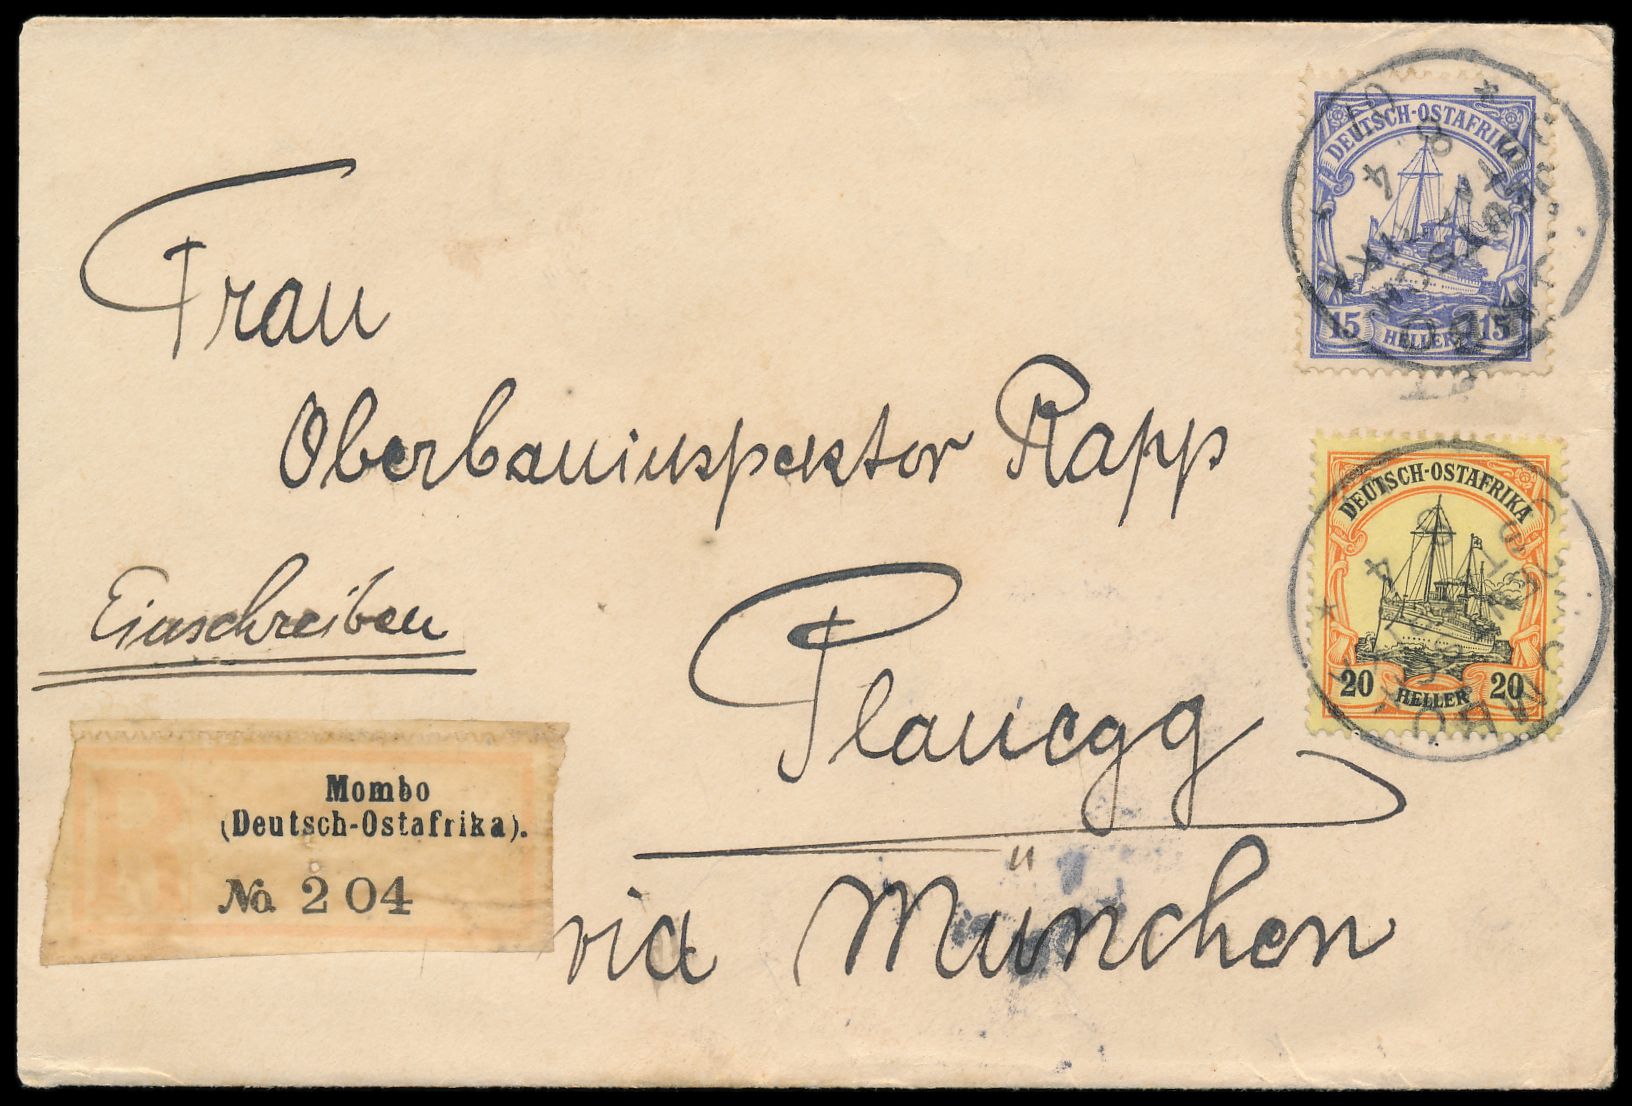 DEUTSCH-OSTAFRIKA
15 HELLER 15
Frau
Oberbauinspektor Rapp
DEUTSCH-OSTAFRIKA
20 HELLER 20
Einschreiben
Planegg
Mombo
(Deutsch-Ostafrika).
No. 204
via München